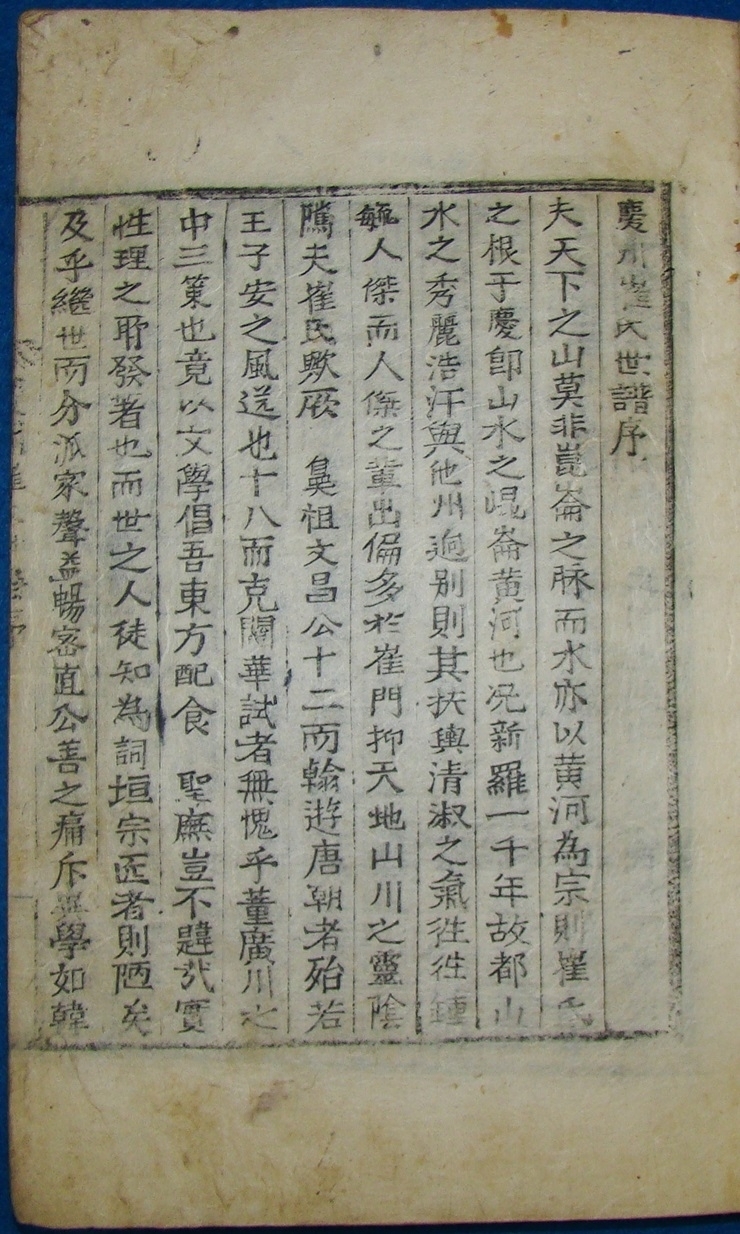 慶州崔氏世譜序
夫天下之山莫非崑崙之脉而水亦以黃河為宗則崔氏
之根于慶卽山水之崐崙黃河也况新羅一千年故都山
水之秀麗浩汗與他州逈别則其扶輿清淑之氣徃徃鍾
毓人傑而人傑之輩出偏多於崔門抑天地山川之靈陰
隲夫崔氏歟厥 鼻祖文昌公十二而翰遊唐朝者殆若
王子安之風送也十八而克闡華試者無愧乎董廣川之
中三策也竟以文學倡吾東方配食 聖廡豈不韙哉實
性理之所發著也而世之人徒知為詞垣宗匠者則陋矣
及乎繼世而分派家聲益暢密直公善之痛斥異學如韓